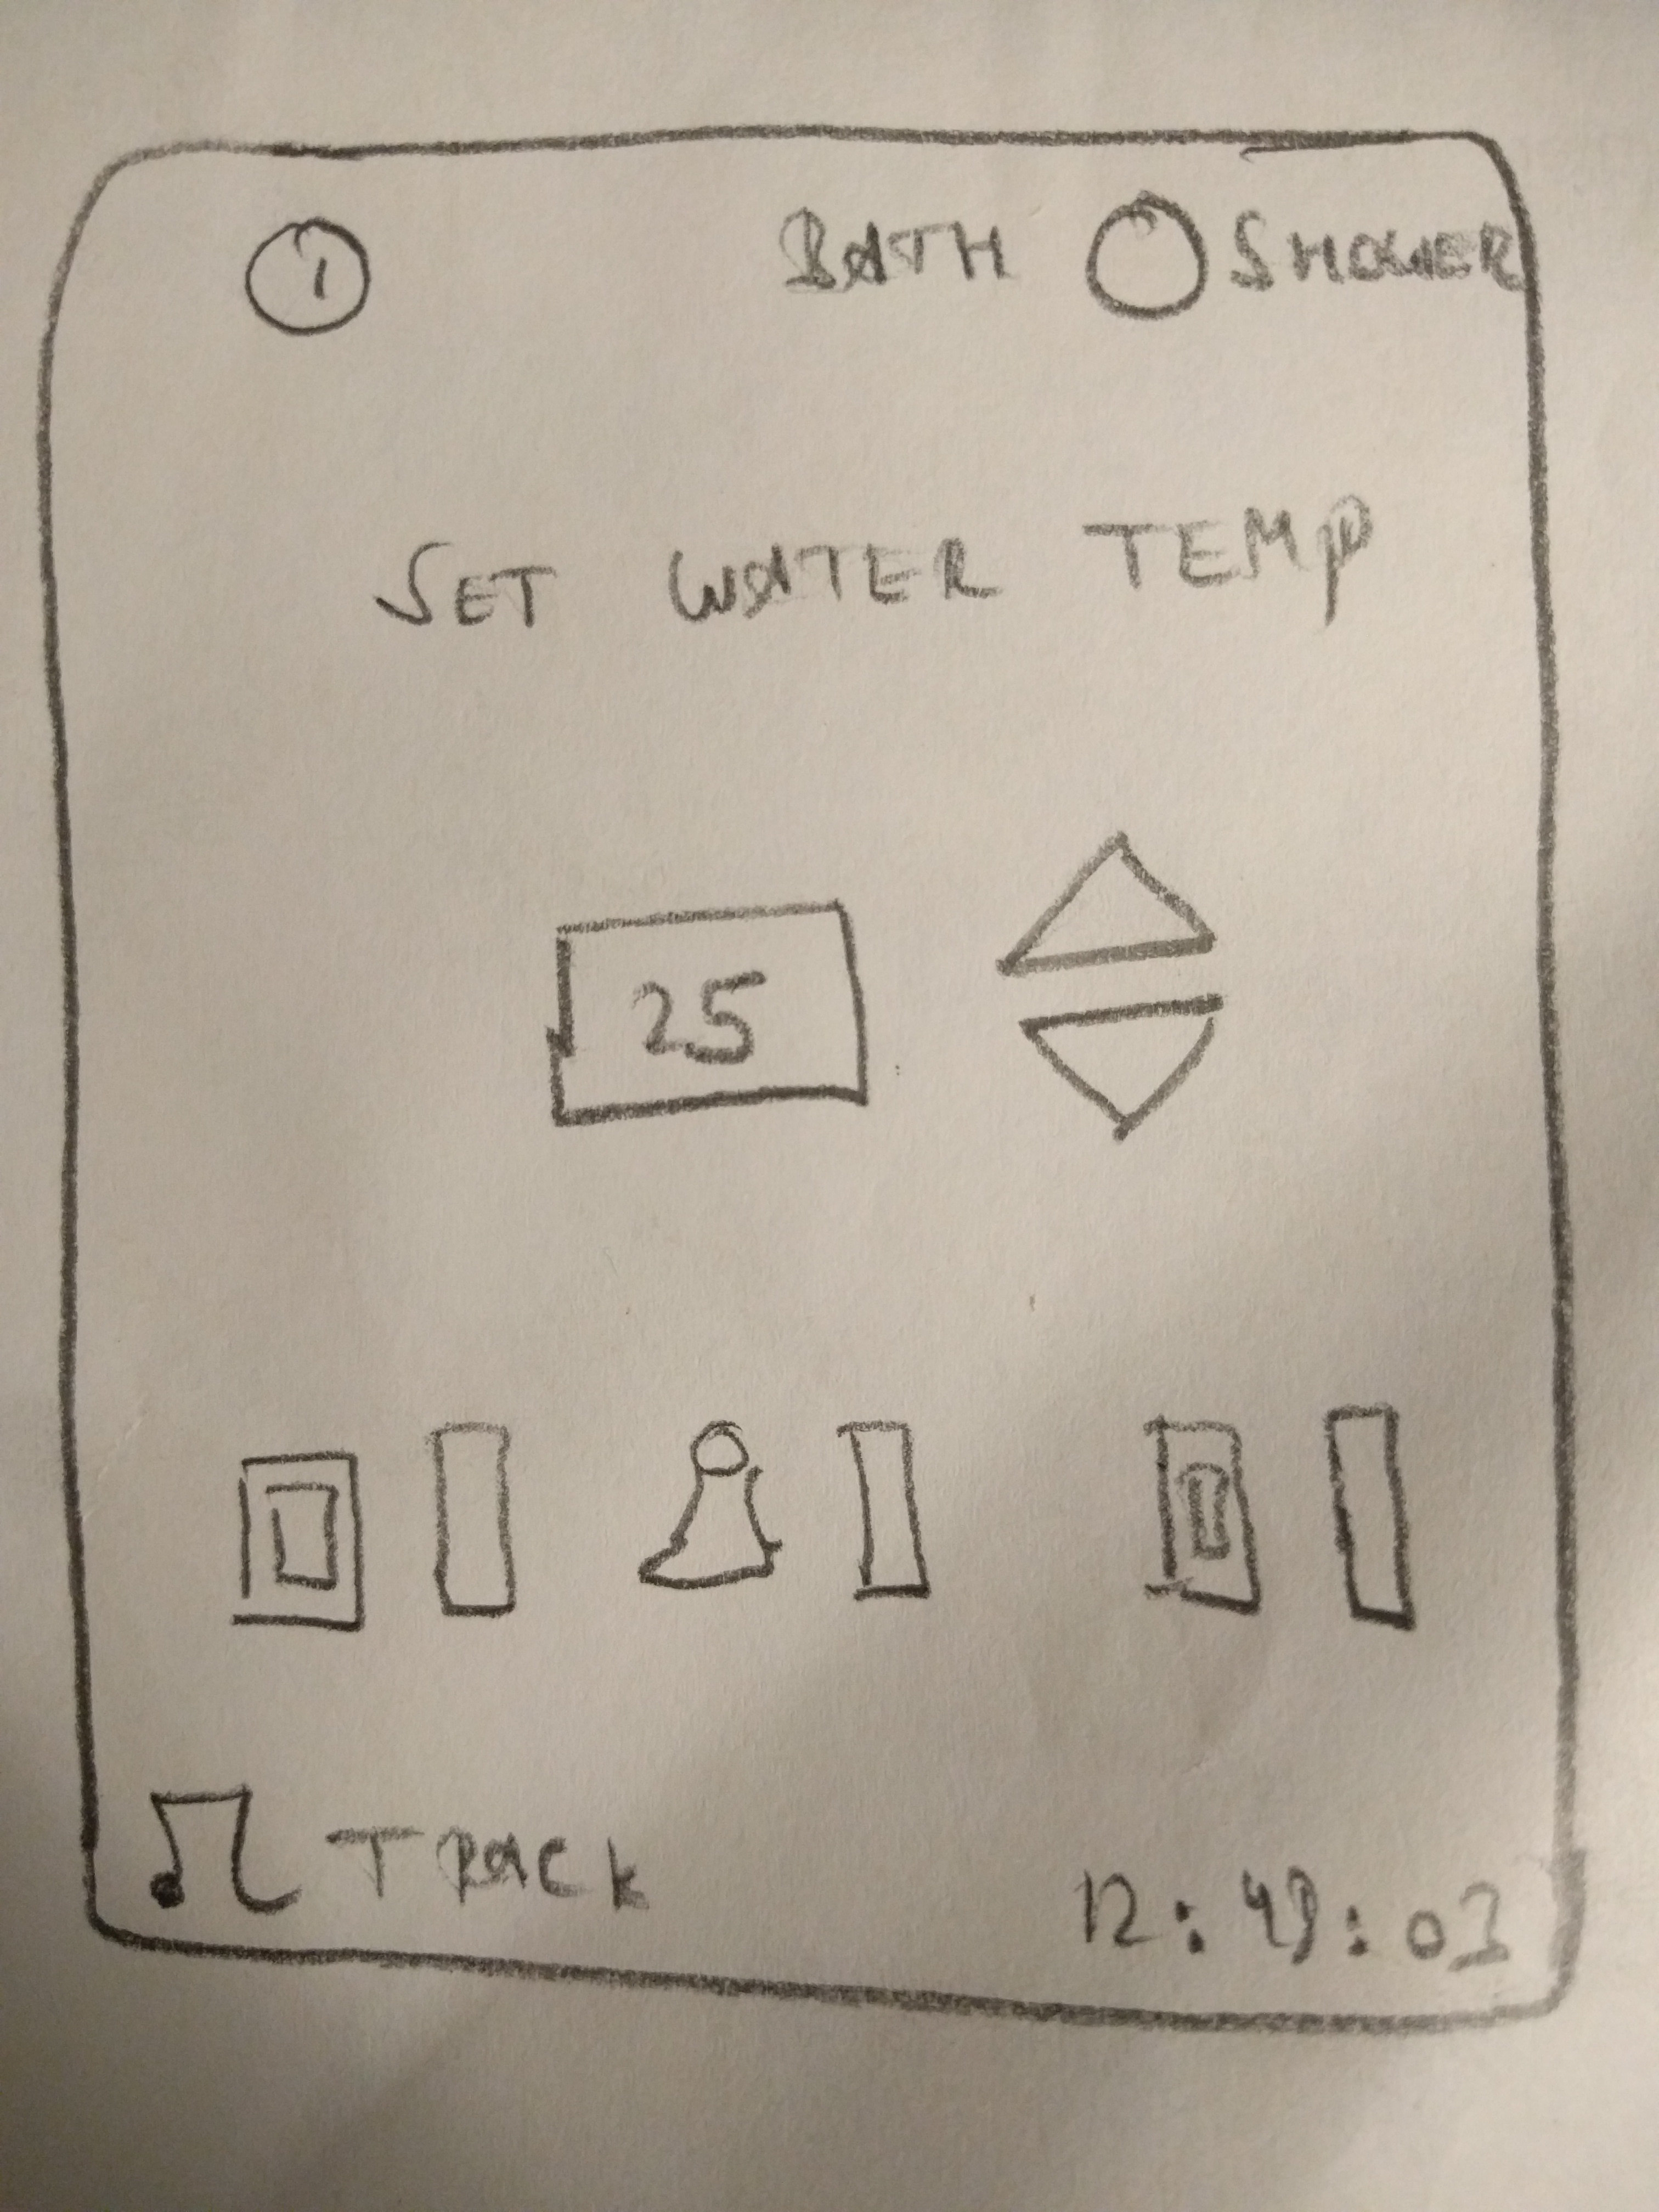 BATH SHOWER
SET WATER TEMP
25
TRACK
12:49:03